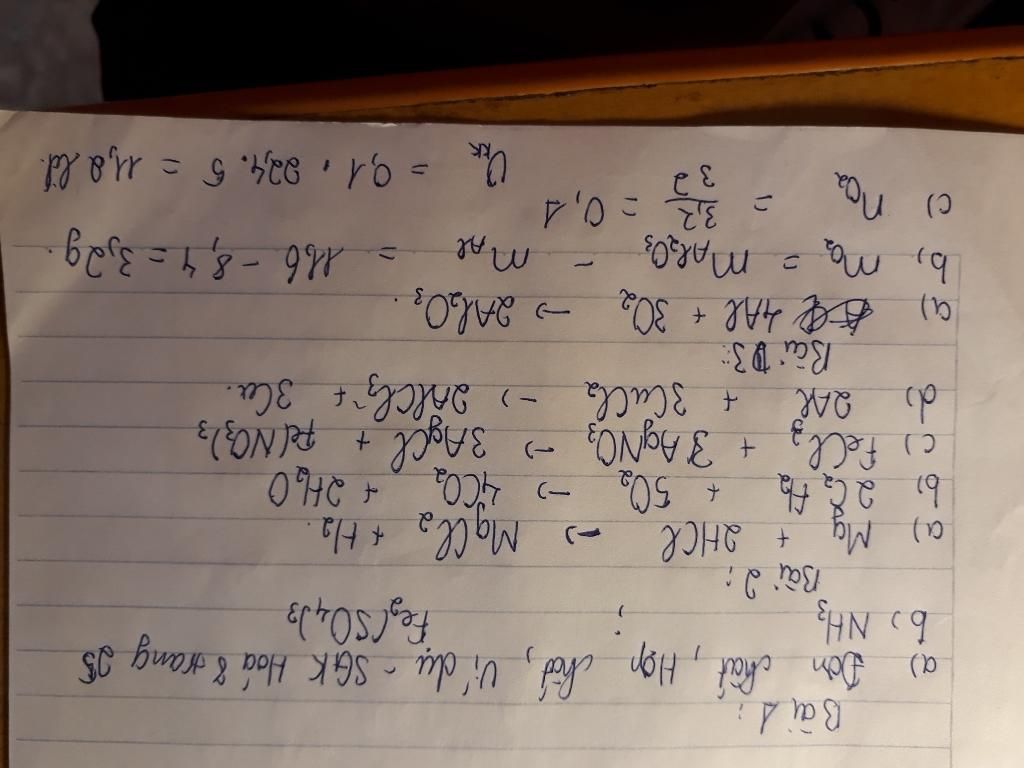 Bài 1:
a) Đơn chất, Hợp chất, Ví dụ - SGK Hoá 8 trang 25
b, NH₃ ; Fe₂(SO₄)₃
Bài 2:
a) Mg + 2HCl → MgCl₂ + H₂.
b, 2C₂H₂ + 5O₂ → 4CO₂ + 2H₂O
c) FeCl₃ + 3AgNO₃ → 3AgCl + Fe(NO₃)₃
d, 2Al + 3CuCl₂ → 2AlCl₃ + 3Cu.
Bài 3:
a) 4Al + 3O₂ → 2Al₂O₃.
b, mO₂ = mAl₂O₃ - mAl = 11,6 - 8,4 = 3,2g.
c) nO₂ = 3,2/32 = 0,1
Vkk = 0,1 . 22,4 . 5 = 11,2 lít.